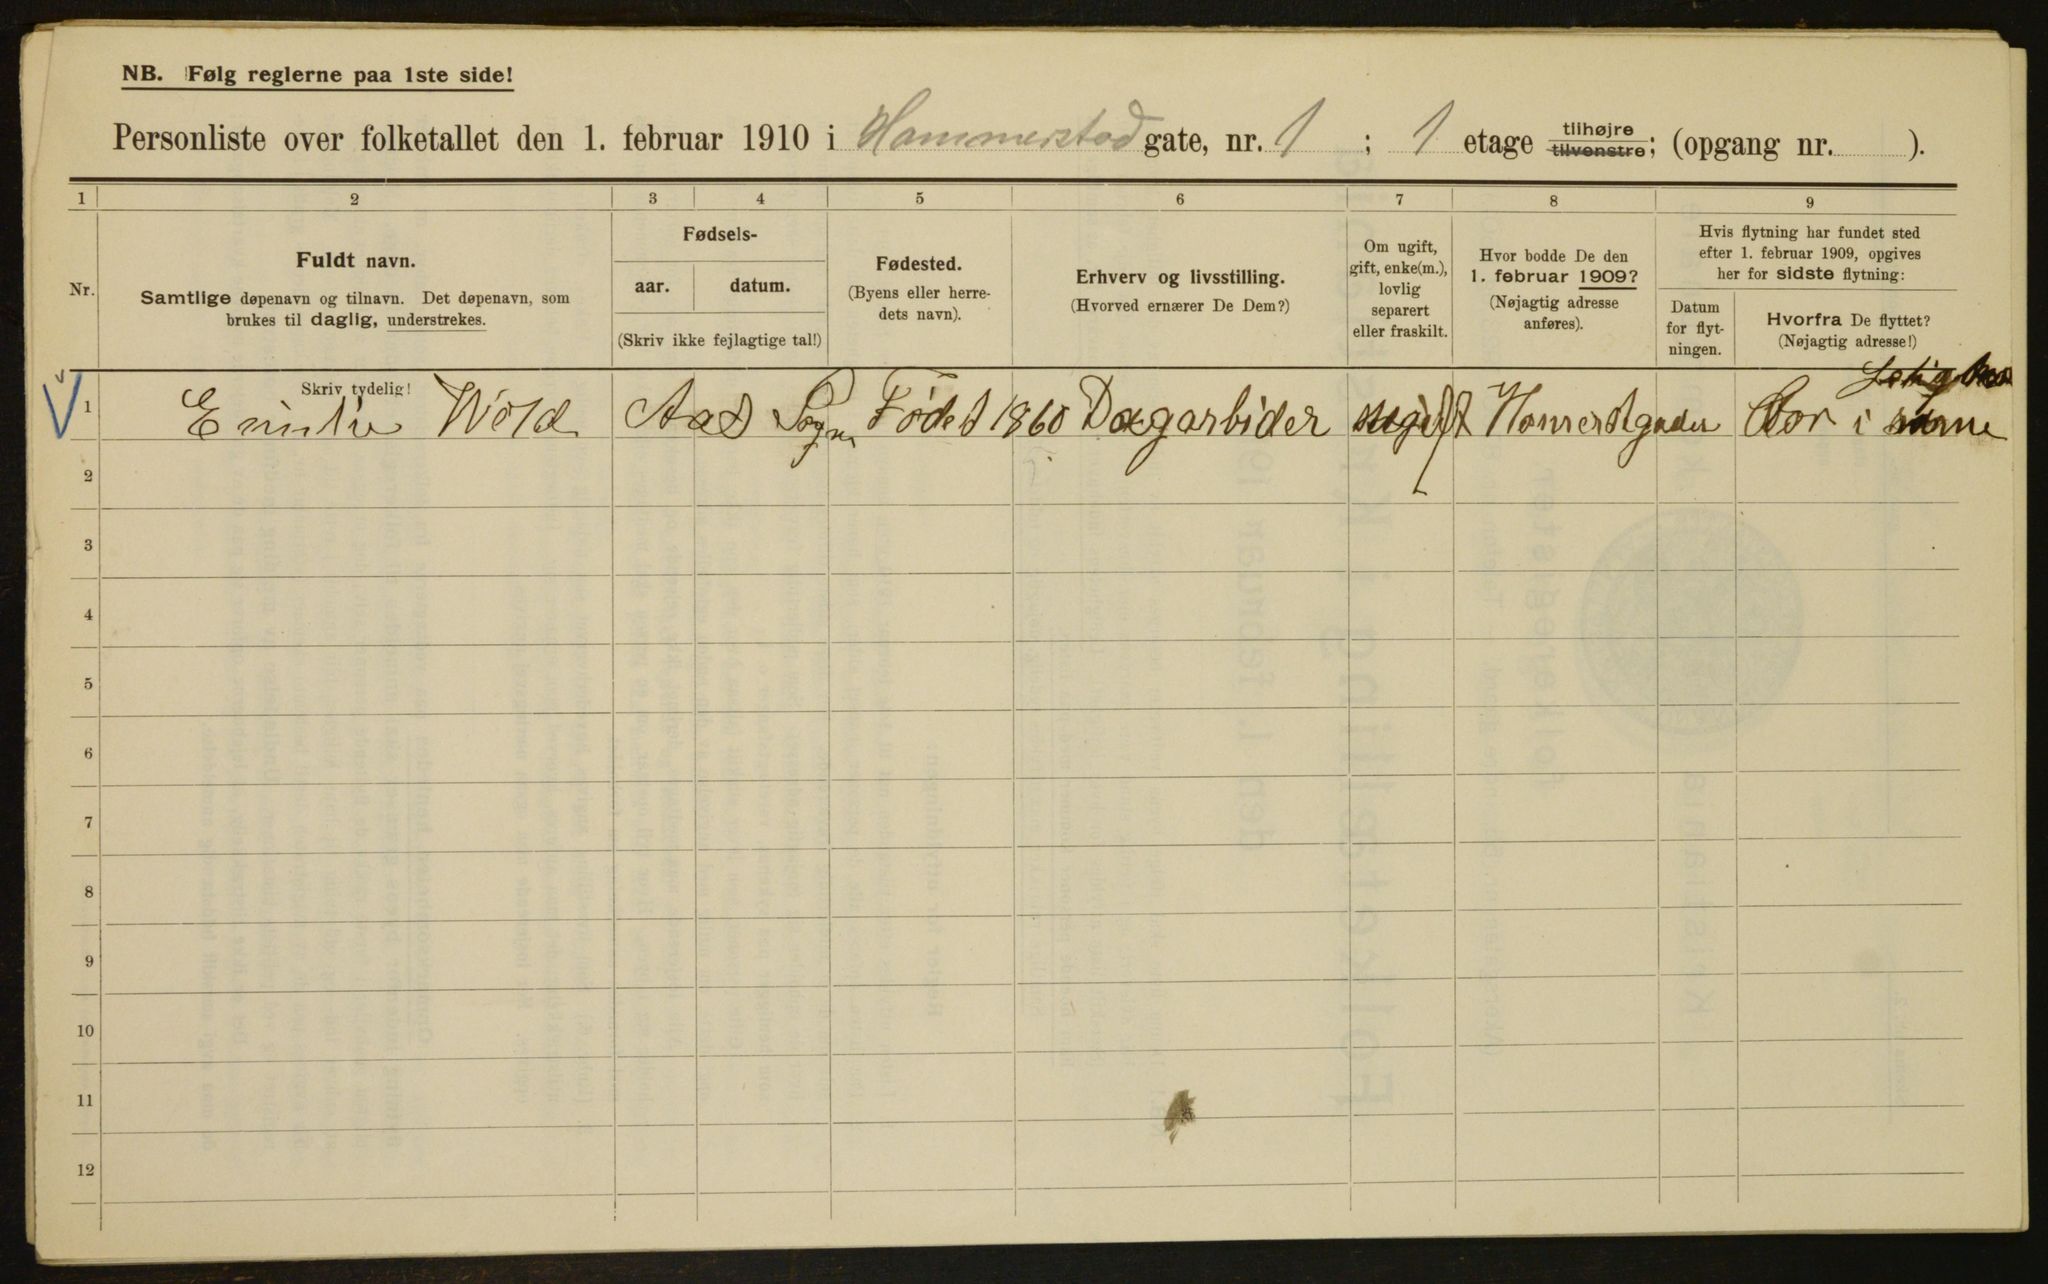 NB. Følg reglerne paa 1ste side!
Personliste over folketallet den 1. februar 1910 i Hammerstad gate, nr. 1 ; 1 etage tilhøjre tilvenstre; (opgang nr. ).
1 2 3 4 5 6 7 8 9
Nr.
Fuldt navn.
Samtlige døpenavn og tilnavn. Det døpenavn, som
brukes til daglig, understrekes.
Fødsels-
aar. datum.
(Skriv ikke fejlagtige tal!)
Fødested.
(Byens eller herre-
dets navn).
Erhverv og livsstilling.
(Hvorved ernærer De Dem?)
Om ugift,
gift, enke(m.),
lovlig
separert
eller fraskilt.
Hvor bodde De den
1. februar 1909?
(Nøjagtig adresse
anføres).
Hvis flytning har fundet sted
efter 1. februar 1909, opgives
her for sidste flytning:
Datum
for flyt-
ningen.
Hvorfra De flyttet?
(Nøjagtig adresse!)
Skriv tydelig!
1 Emilie Wold Aas Sogn Født 1860 Dagarbider ugift i
2
3
4
5
6
7
8
9
10
11
12